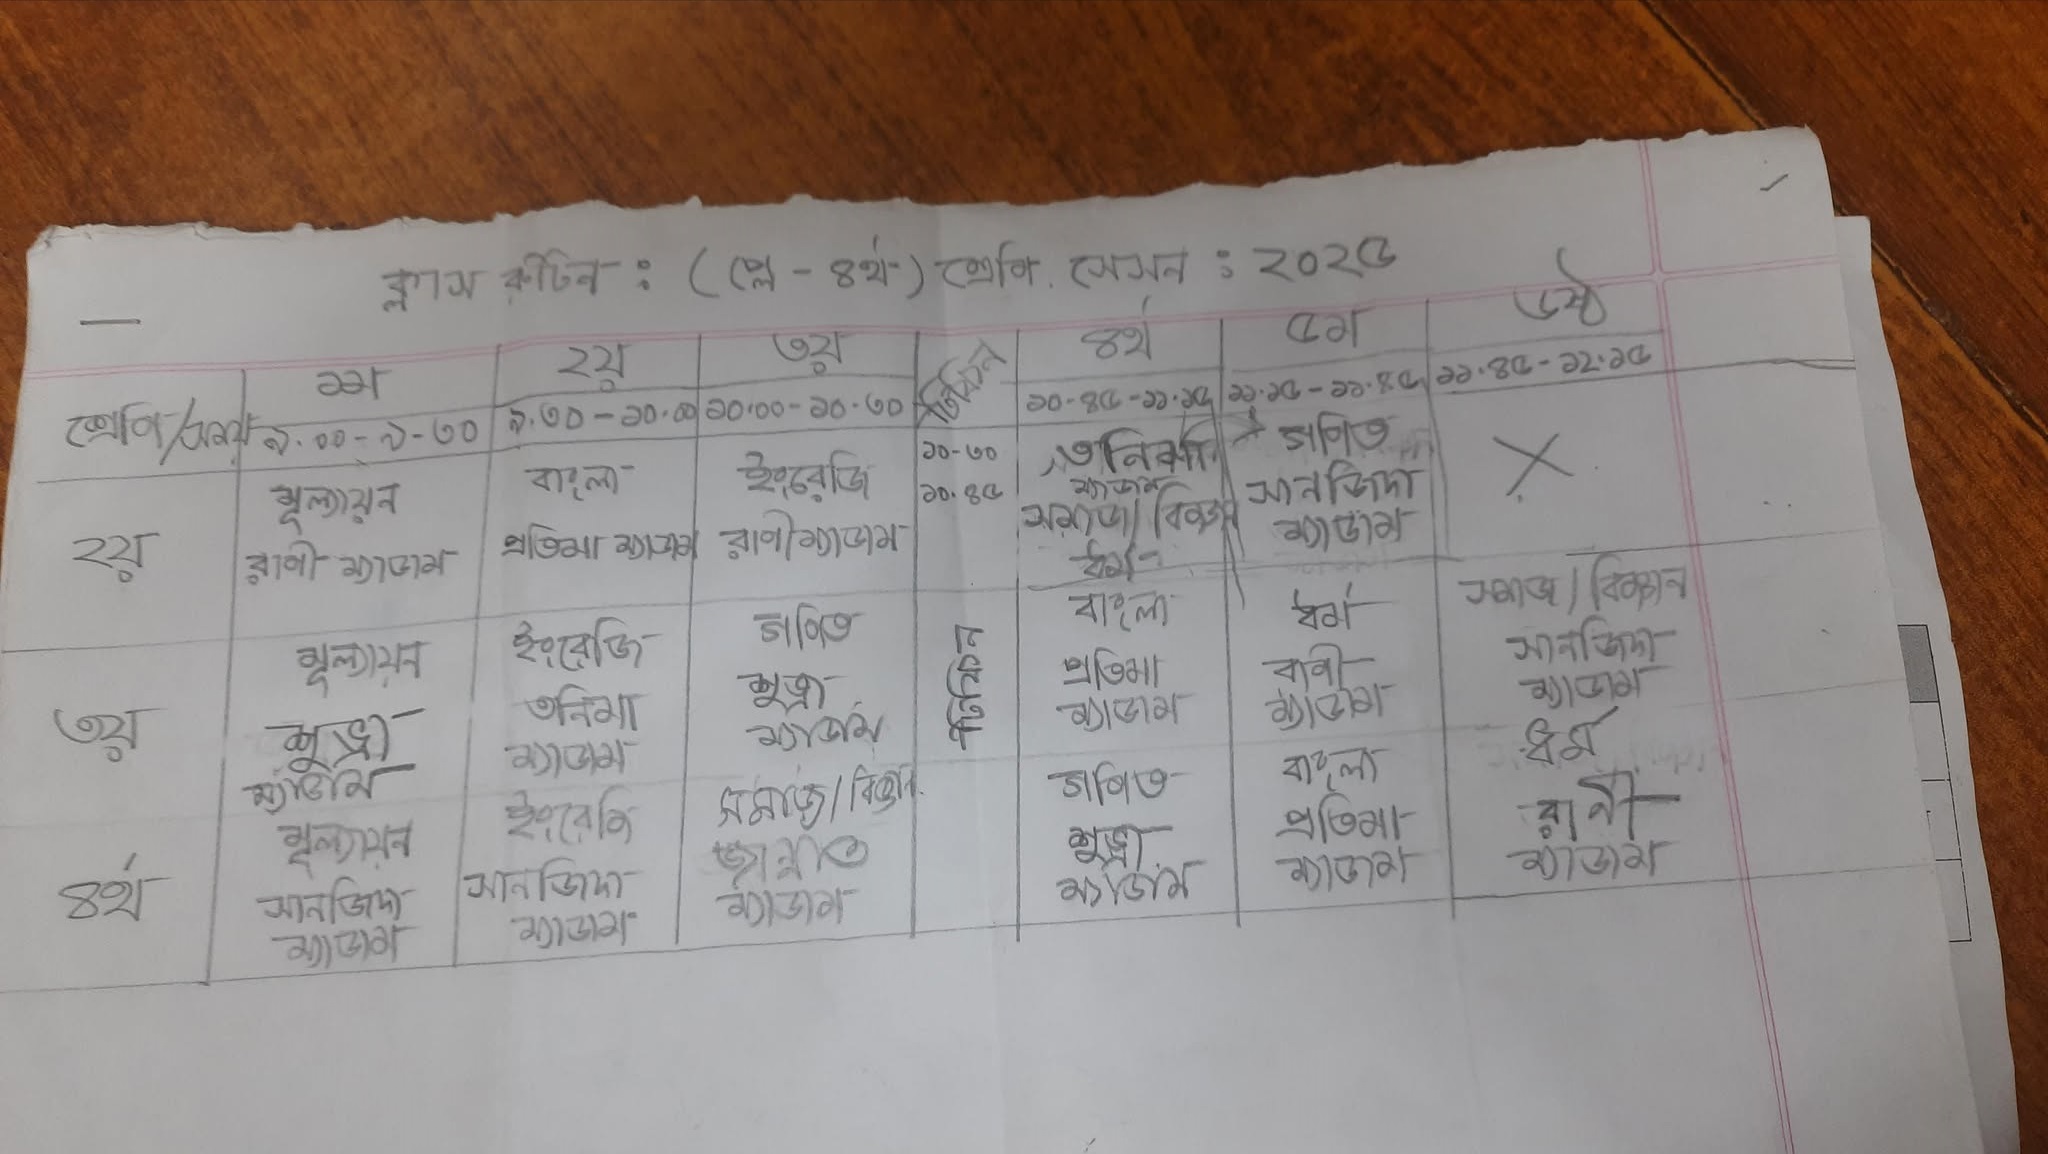 ক্লাস রুটিন : (প্লে - ৪র্থ) শ্রেণি. সেসন : ২০২৫
শ্রেণি/সময় ১ম ২য় ৩য় টিফিন ৪র্থ ৫ম ৬ষ্ঠ
৯.০০-৯-৩০ ৯.৩০-১০.০০ ১০.০০-১০.৩০ ১০.৪৫-১১.১৫ ১১.১৫-১১.৪৫ ১১.৪৫-১২.১৫
২য়
মূল্যায়ন
রাণী ম্যাডাম
বাংলা
প্রতিমা ম্যাডাম
ইংরেজি
রাণী ম্যাডাম
১০-৩০
১০.৪৫
তনিমা
ম্যাডাম
সমাজ/বিজ্ঞান
ধর্ম
গণিত
সানজিদা
ম্যাডাম
৩য়
মূল্যায়ন
শুভ্রা
ম্যাডাম
ইংরেজি
তনিমা
ম্যাডাম
গণিত
শুভ্রা
ম্যাডাম
টিফিন
বাংলা
প্রতিমা
ম্যাডাম
ধর্ম
রাণী
ম্যাডাম
সমাজ/বিজ্ঞান
সানজিদা
ম্যাডাম
৪র্থ
মূল্যায়ন
সানজিদা
ম্যাডাম
ইংরেজি
সানজিদা
ম্যাডাম
সমাজ/বিজ্ঞান
জান্নাত
ম্যাডাম
গণিত
শুভ্রা
ম্যাডাম
বাংলা
প্রতিমা
ম্যাডাম
ধর্ম
রানী
ম্যাডাম